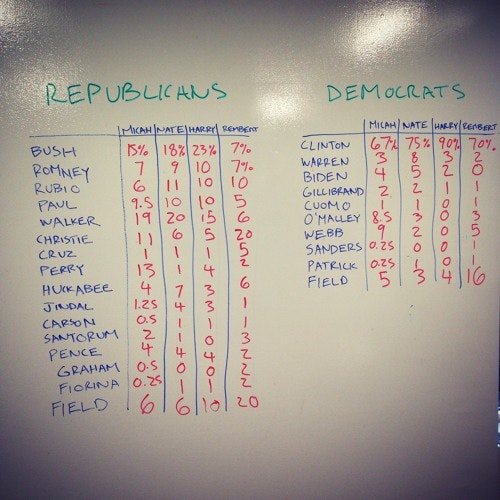 REPUBLICANS
MICAH NATE HARRY REMBERT
BUSH 15% 18% 23% 7%
ROMNEY 7 9 10 7%
RUBIO 6 11 10 10
PAUL 9.5 10 10 5
WALKER 19 20 15 6
CHRISTIE 11 6 5 20
CRUZ 1 1 1 5
PERRY 13 1 4 2
HUCKABEE 4 7 3 6
JINDAL 1.25 4 3 1
CARSON 0.5 1 1 1
SANTORUM 2 1 0 3
PENCE 4 4 4 2
GRAHAM 0.5 0 0 2
FIORINA 0.25 1 1 2
FIELD 6 6 10 20
DEMOCRATS
MICAH NATE HARRY REMBERT
CLINTON 67% 75% 90% 70%
WARREN 3 8 3 2
BIDEN 4 5 2 0
GILLIBRAND 2 2 1 1
CUOMO 1 1 0 1
O'MALLEY 8.5 3 0 3
WEBB 9 2 0 5
SANDERS 0.25 0 0 1
PATRICK 0.25 1 0 1
FIELD 5 3 4 16